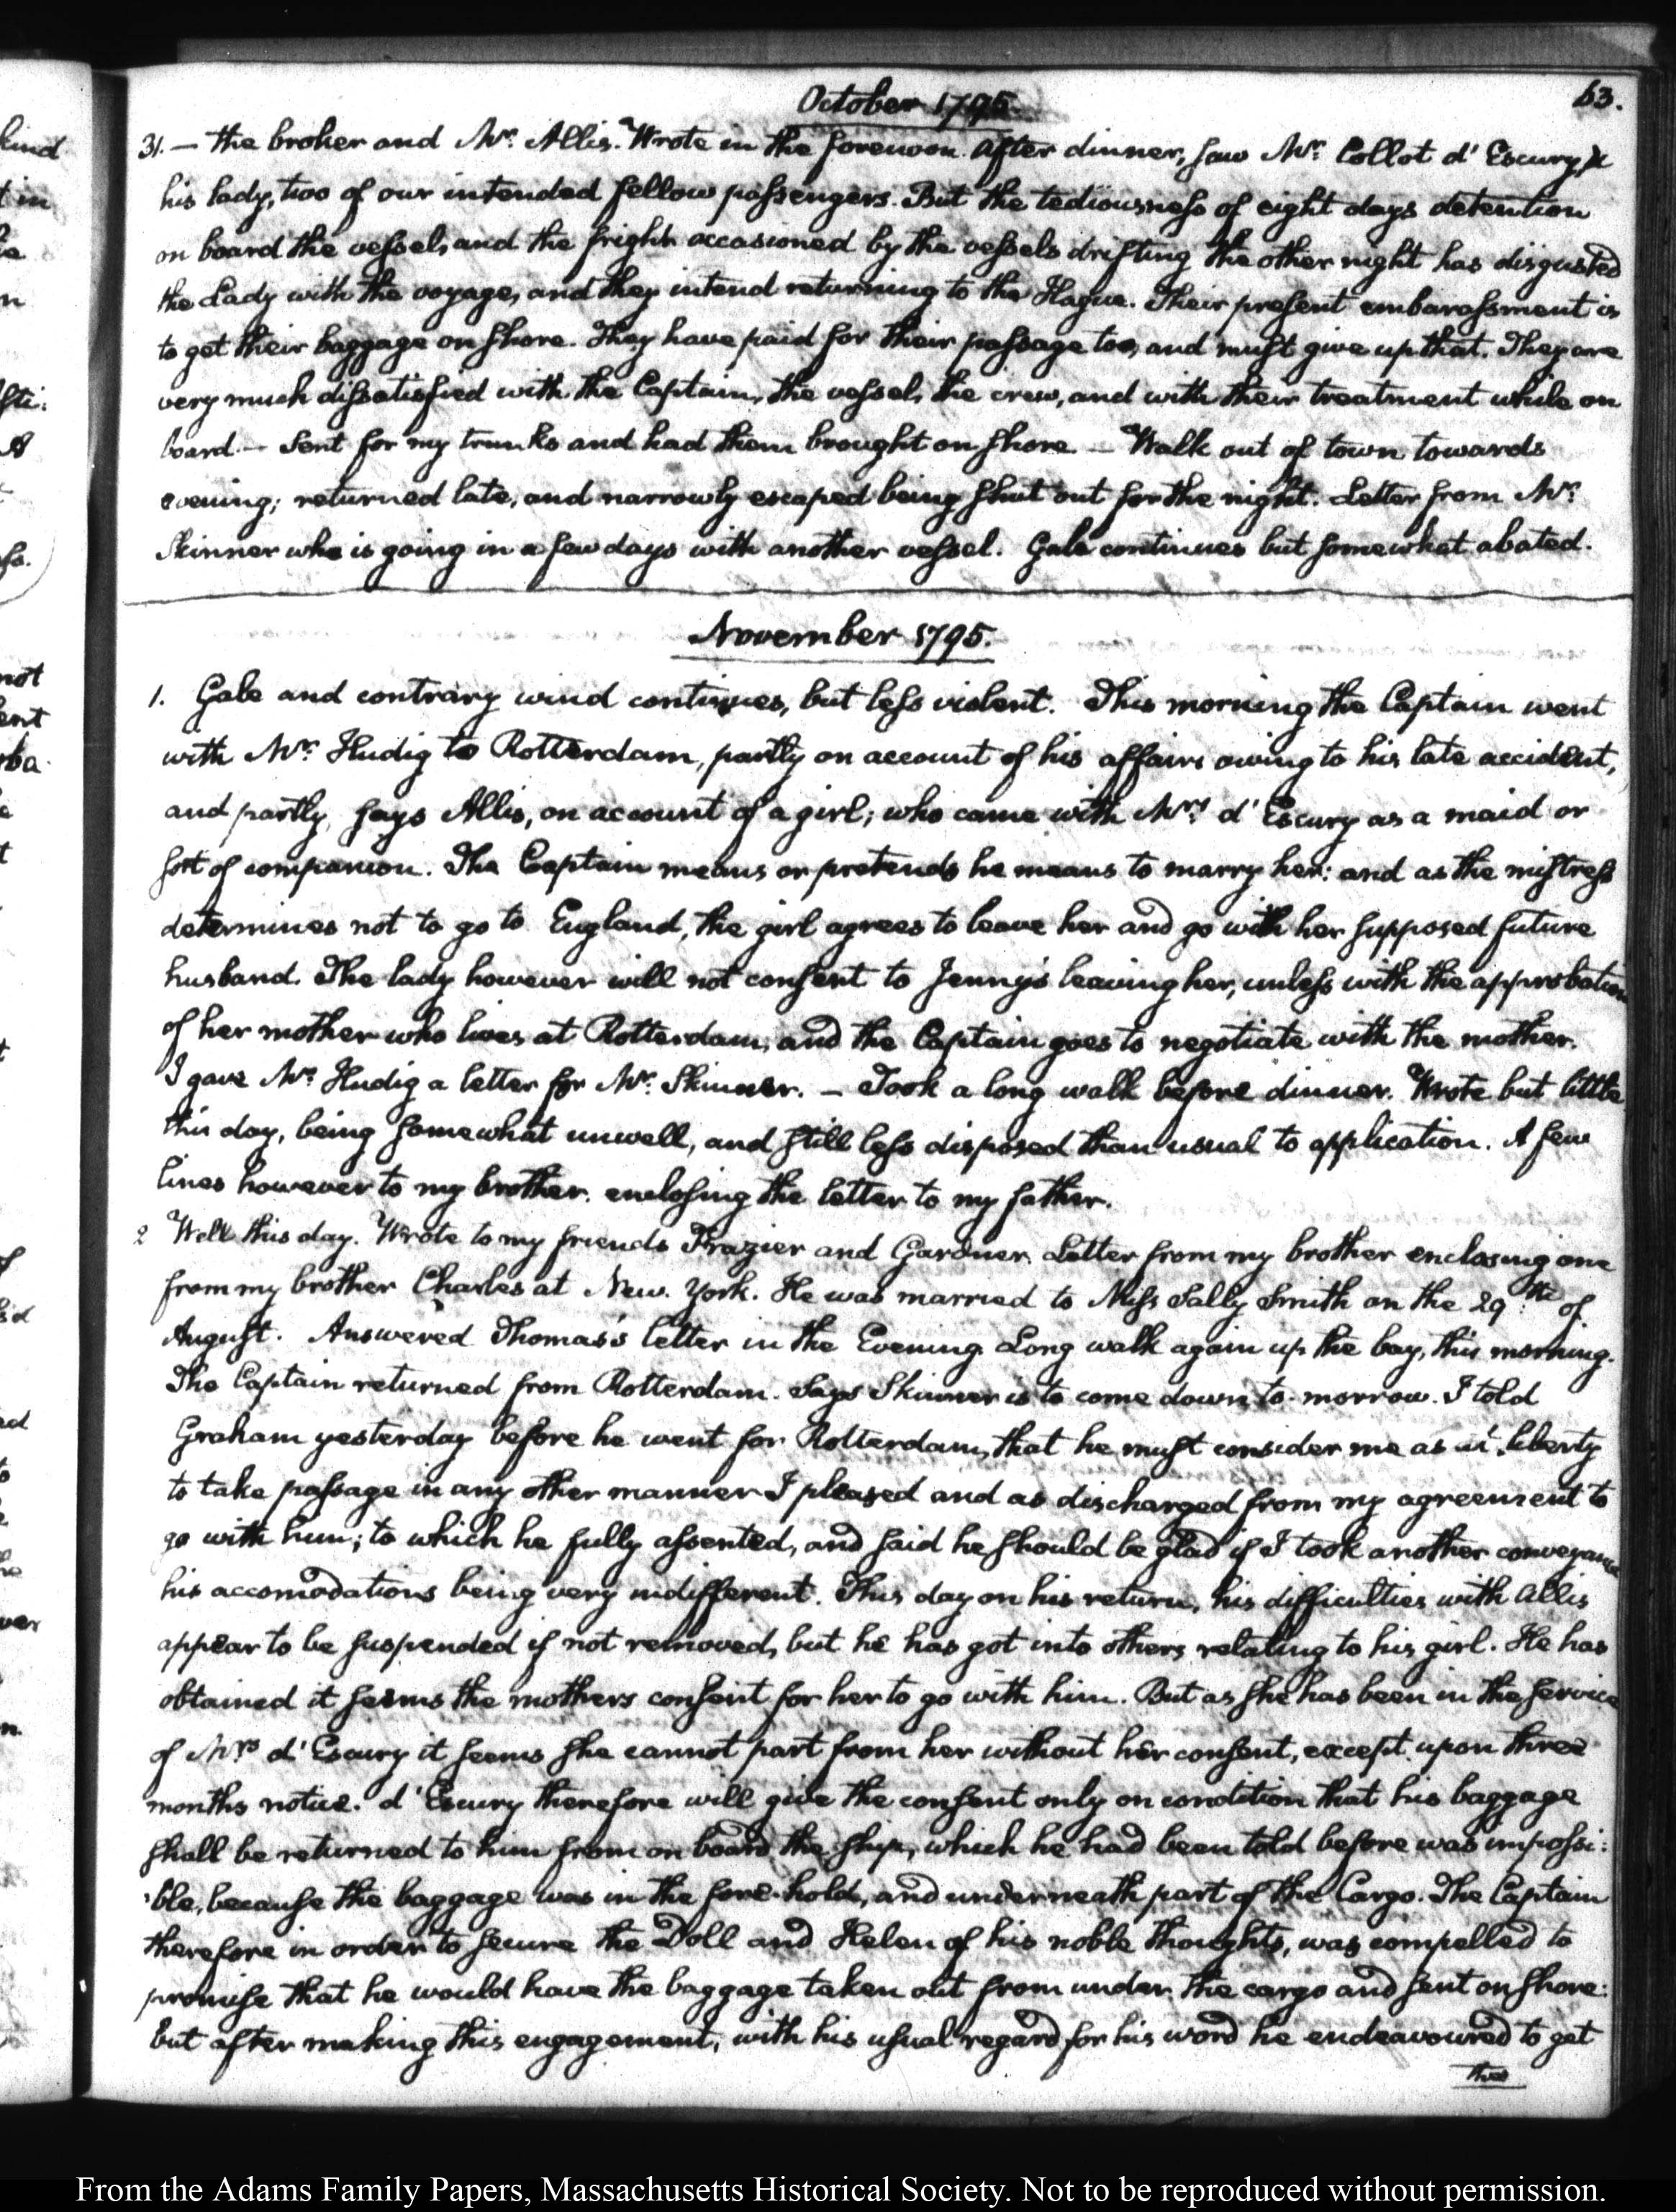 October 1795.
63.
31. — the broker and Mr. Allis. Wrote in the forenoon. After dinner, saw Mr. Collot d'Escury, &
his lady, two of our intended fellow passengers. But the tediousness of eight days detention
on board the vessel, and the fright occasioned by the vessels drifting the other night has disgusted
the Lady with the voyage, and they intend returning to the Hague. Their present embarassment is
to get their baggage on shore. They have paid for their passage too, and must give up that. They are
very much dissatisfied with the Captain, the vessel, the crew, and with their treatment while on
board. — Sent for my trunks and had them brought on shore — Walk out of town towards
evening; returned late, and narrowly escaped being shut out for the night. Letter from Mr.
Skinner who is going in a few days with another vessel. Gale continues but somewhat abated.
November 1795.
1. Gale and contrary wind continues, but less violent. This morning the Captain went
with Mr. Hudig to Rotterdam, partly on account of his affairs owing to his late accident,
and partly, says Allis, on account of a girl; who came with Mrs. d'Escury as a maid or
sort of companion. The Captain means or pretends he means to marry her: and as the mistress
determines not to go to England, the girl agrees to leave her and go with her supposed future
husband. The lady however will not consent to Jenny's leaving her, unless with the approbation
of her mother who lives at Rotterdam, and the Captain goes to negotiate with the mother.
I gave Mr. Hudig a letter for Mr. Skinner. — Took a long walk before dinner. Wrote but little
this day, being somewhat unwell, and still less disposed than usual to application. A few
lines however to my brother. enclosing the letter to my father.
2 Well this day. Wrote to my friends Frazier and Gardner. Letter from my brother enclosing one
from my brother Charles at New. York. He was married to Miss Sally Smith on the 29th. of
August. Answered Thomas's letter in the Evening. Long walk again up the bay, this morning.
The Captain returned from Rotterdam. Says Skinner is to come down to-morrow. I told
Graham yesterday before he went for Rotterdam, that he must consider me as at liberty
to take passage in any other manner I pleased and as discharged from my agreement to
go with him; to which he fully assented, and said he should be glad if I took another conveyance
his accomodations being very indifferent. This day on his return, his difficulties with Allis
appear to be suspended if not removed, but he has got into others relating to his girl. He has
obtained it seems the mothers consent for her to go with him. But as she has been in the service
of Mrs d'Escury it seems she cannot part from her without her consent, except upon three
months notice. d'Escury therefore will give the consent only on condition that his baggage
shall be returned to him from on board the ship, which he had been told before was impossi:
:ble, because the baggage was in the fore-hold, and underneath part of the Cargo. The Captain
therefore in order to secure the Doll and Helen of his noble thoughts, was compelled to
promise that he would have the baggage taken out from under the cargo and sent on shore:
but after making this engagement, with his usual regard for his word he endeavoured to get
From the Adams Family Papers, Massachusetts Historical Society. Not to be reproduced without permission.